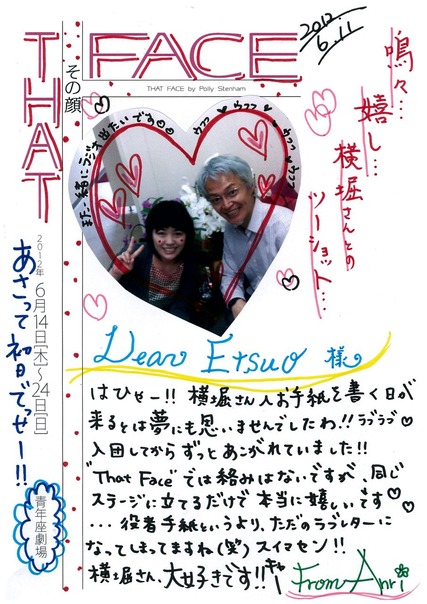 THAT FACE
その顔
THAT FACE by Polly Stenham
2012
6.11
嗚々…
嬉し…
横堀さんとの
ツーショット…
また…一緒にラジオ出たいです
ウフフ ウフフ ウフフ ウフフ
2012年 6月14日[木]〜24日[日]
あさって初日でっせー!!
青年座劇場
Dear Etsuo 様
はひゃー!! 横堀さんへお手紙を書く日が
来るとは夢にも思いませんでしたわ!! ラブラブ
入団してからずっとあこがれていました!!
"That Face"では絡みはないですが、同じ
ステージに立てるだけで本当に嬉しいです
... 役者手紙というより、ただのラブレターに
なってしまってますね(笑)スイマセン!!
横堀さん、大好きです!! キャー
From Anri